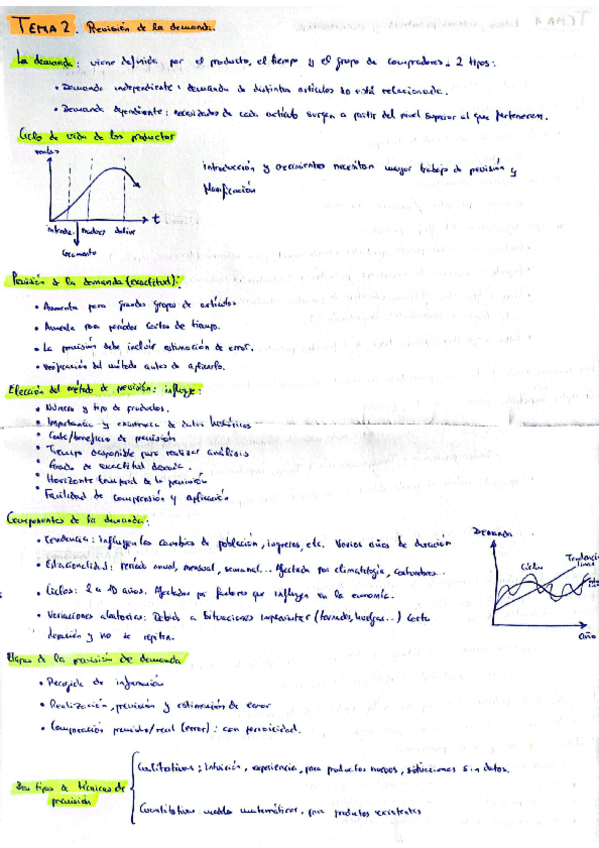 TEMA 2. Previsión de la demanda.
La demanda: viene definida por el producto, el tiempo y el grupo de compradores. 2 tipos:
• Demanda independiente: demanda de distintos artículos no está relacionada.
• Demanda dependiente: necesidades de cada artículo surgen a partir del nivel superior al que pertenecen.
Ciclo de vida de los productos
ventas
introducción y crecimientos necesitan mayor trabajo de previsión y
planificación
t
introdu. madurez declive
crecimiento
Previsión de la demanda (exactitud):
• Aumenta para grandes grupos de artículos
• Aumenta para periodos cortos de tiempo.
• La previsión debe incluir estimación de error.
• Verificación del método antes de aplicarlo.
Elección del método de previsión: influye:
• Número y tipo de productos.
• Importancia y existencia de datos históricos
• Coste/beneficio de previsión
• Tiempo disponible para realizar análisis
• Grado de exactitud
• Horizonte temporal de la previsión
• Facilidad de comprensión y aplicación
Componentes de la demanda:
• Tendencia: influyen los cambios de población, ingresos, etc. Varios años de duración
• Estacionalidad: periodo anual, mensual, semanal... Afectada por climatología, costumbres...
• Ciclos: 2 a 10 años. Afectados por factores que influyen en la economía.
• Variaciones aleatorias: Debido a situaciones (tornados, huelgas...) Corta
duración y no se repiten.
Demanda
Ciclos
Tendencia
lineal
año
Etapas de la previsión de demanda
• Recogida de información
• Realización, previsión y estimación de error
• Comparación previsto/real (error): con periodicidad.
Dos tipos de técnicas de
previsión
Cualitativas: Intuición, experiencia, para productos nuevos, situaciones sin datos.
Cuantitativas: modelos matemáticos, para productos existentes